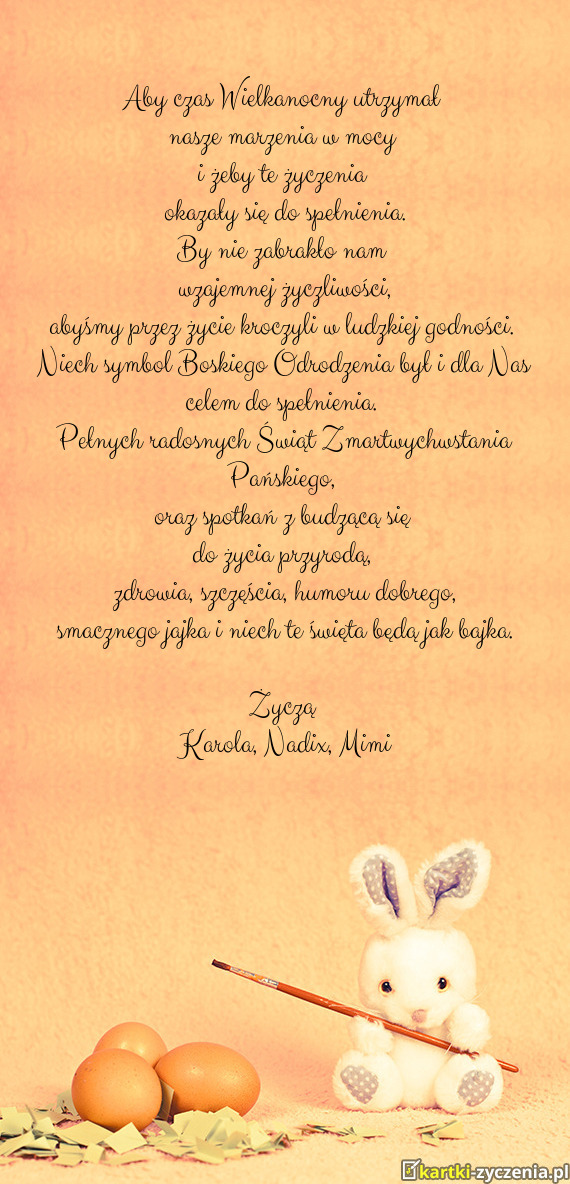 Aby czas Wielkanocny utrzymał
nasze marzenia w mocy
i żeby te życzenia
okazały się do spełnienia.
By nie zabrakło nam
wzajemnej życzliwości,
abyśmy przez życie kroczyli w ludzkiej godności.
Niech symbol Boskiego Odrodzenia był i dla Nas
celem do spełnienia.
Pełnych radosnych Świąt Zmartwychwstania
Pańskiego,
oraz spotkań z budzącą się
do życia przyrodą,
zdrowia, szczęścia, humoru dobrego,
smacznego jajka i niech te święta będą jak bajka.
Życzą
Karola, Nadix, Mimi
kartki-zyczenia.pl